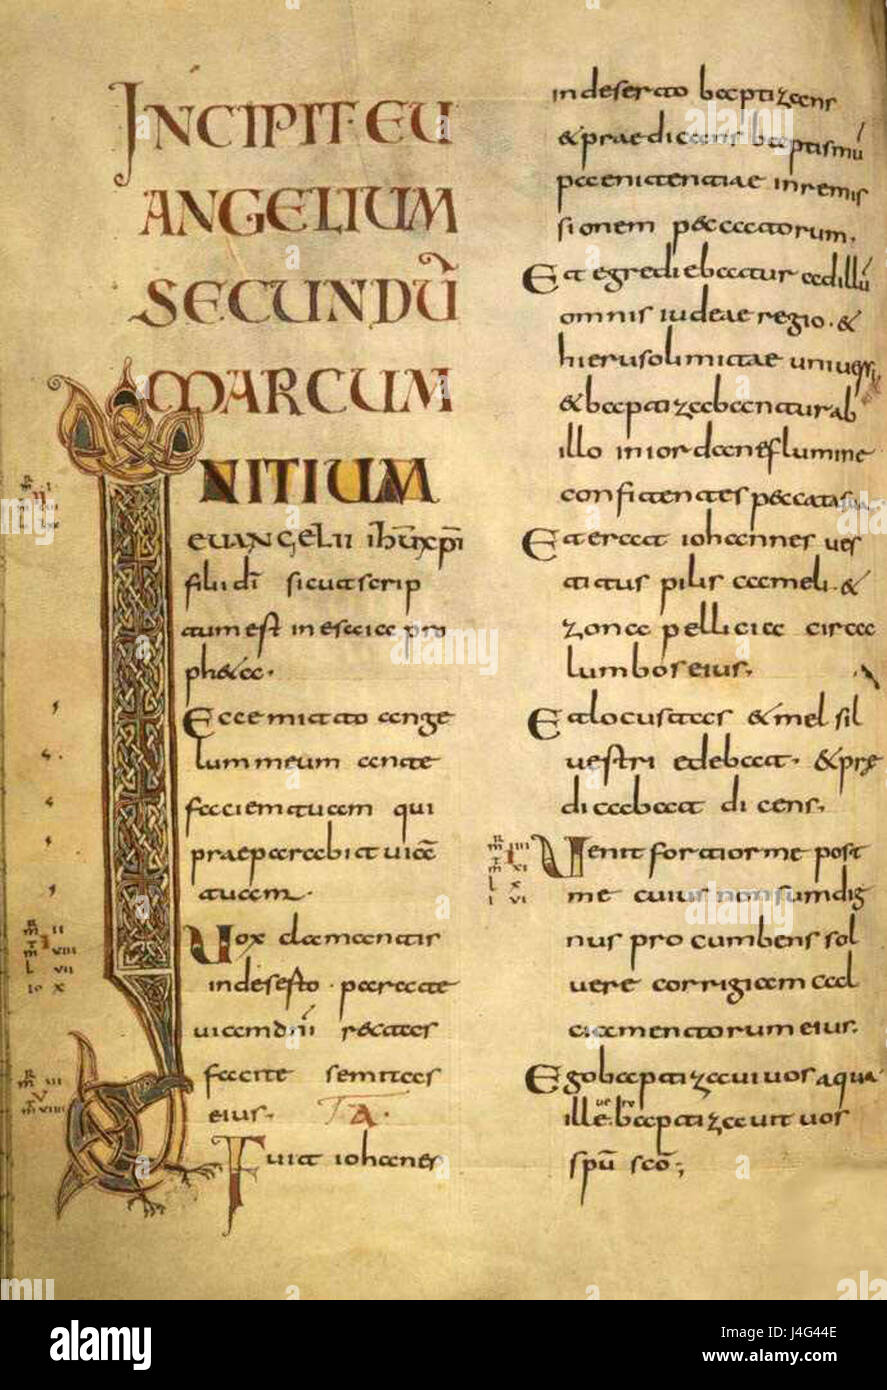 INCIPIT EU
ANGELIUM
SECUNDŪ
MARCUM
INITIUM
euangelii ihū xp̄i
filii dī sicut scrip
tum est in esaia pro
pheta.
Ecce mitto ange
lum meum ante
faciem tuam qui
praeparabit uiā
tuam.
Uox clamantis
in deserto. parate
uiam dn̄i rectas
facite semitas
eius. A.
Fuit iohannes
in deserto baptizans
& praedicans baptismū
paenitentiae in remis
sionem peccatorum.
Et egrediebatur ad illū
omnis iudeae regio. &
hierusolimitae uniuersi
& baptizabantur ab
illo in iordane flumine
confitentes peccata sua
Et erat iohannes ues
titus pilis cameli. &
zona pellicia circa
lumbos eius.
Et locustas & mel sil
uestri edebat. & præ
dicabat dicens.
Uenit fortior me post
me cuius non sum dig
nus procumbens sol
uere corrigiam cal
ciamentorum eius.
Ego baptizaui uos aqua
ille uero baptizauit uos
spū scō;
alamy
alamy stock photo
J4G44E
www.alamy.com